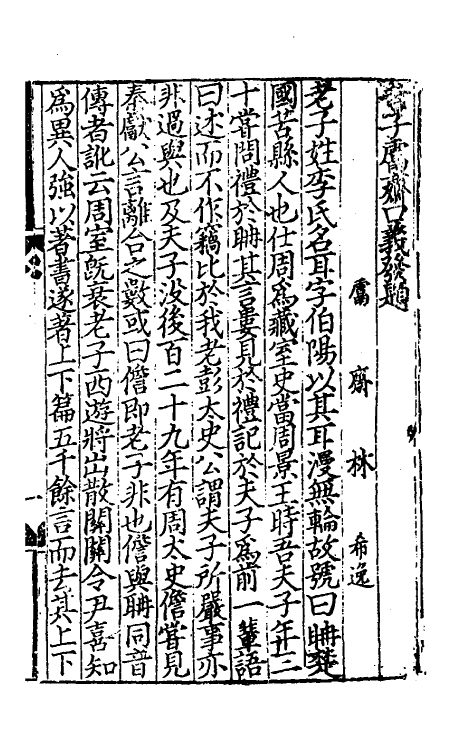 老子鬳齋口義發題
鬳齋林希逸
老子姓李氏名耳字伯陽以其耳漫無輪故號曰聃楚
國苦縣人也仕周為藏室史當周景王時吾夫子年三
十嘗問禮於聃其言屢見於禮記於夫子為前一輩語
曰述而不作竊比於我老彭太史公謂夫子所嚴事亦
非過與也及夫子没後百二十九年有周太史儋嘗見
秦獻公言離合之數或曰儋即老子非也儋與聃同音
傳者訛云周室既衰老子西遊將出散關關令尹喜知
為異人強以著書遂著上下篇五千餘言而去其上下